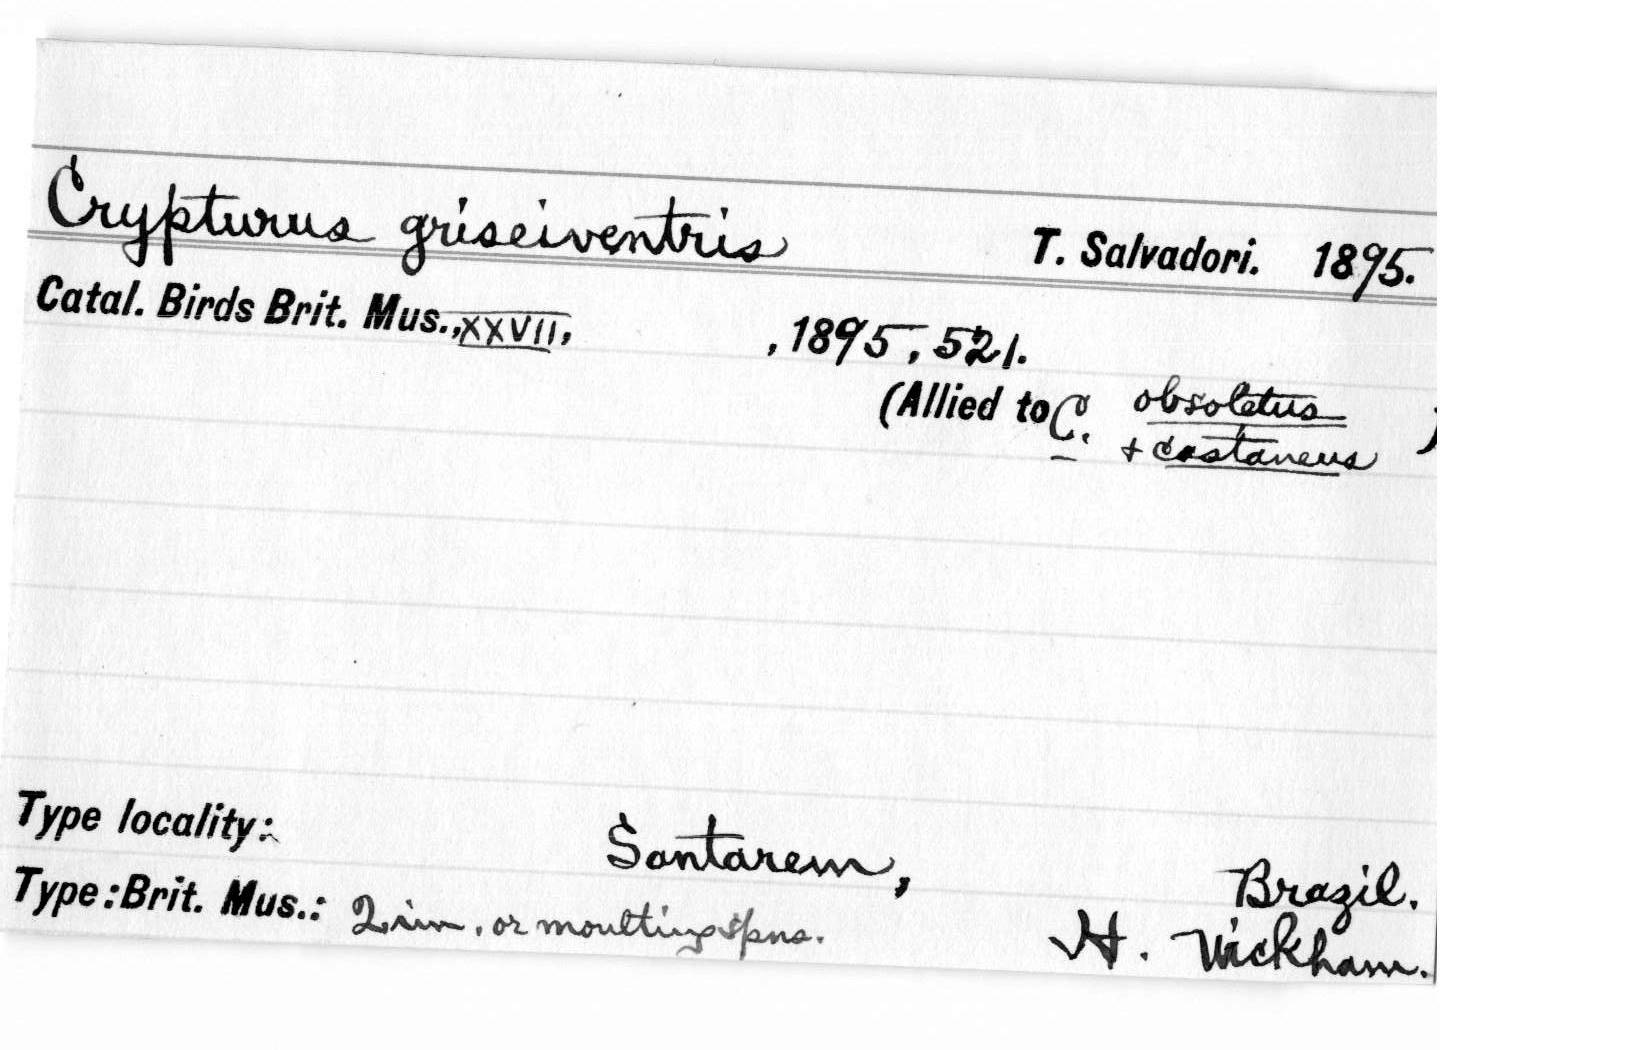 Crypturus griseiventris T. Salvadori. 1895.
Catal. Birds Brit. Mus., XXVII, , 1895, 521.
(Allied to C. obsoletus )
+ castaneus
Type locality: Santarem, Brazil.
Type: Brit. Mus.: 2 im. or moulting spns. H. Wickham.